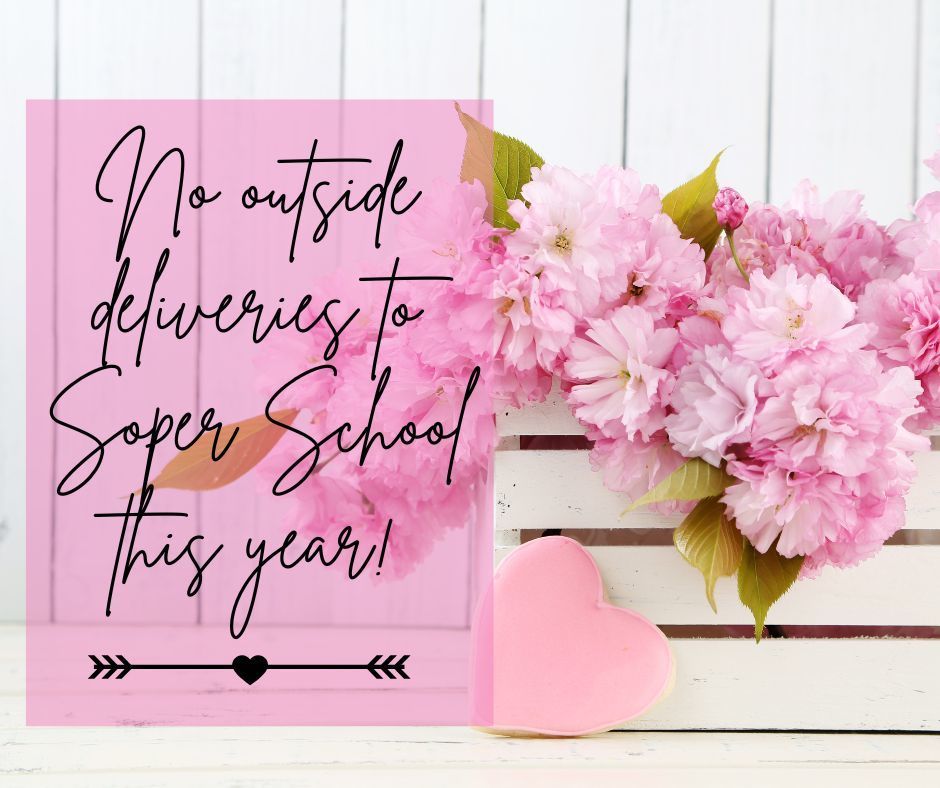 No outside
deliveries to
Soper School
this year!